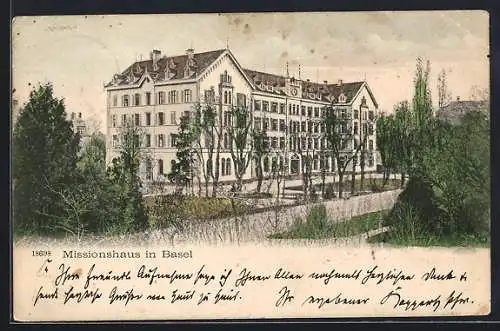 18698 Missionshaus in Basel
Ihre Freundl. Aufnahme sage ich Ihnen Allen nochmals herzlichen Dank &
sende herzliche Grüsse von Haus zu Haus. Ihr ergebener